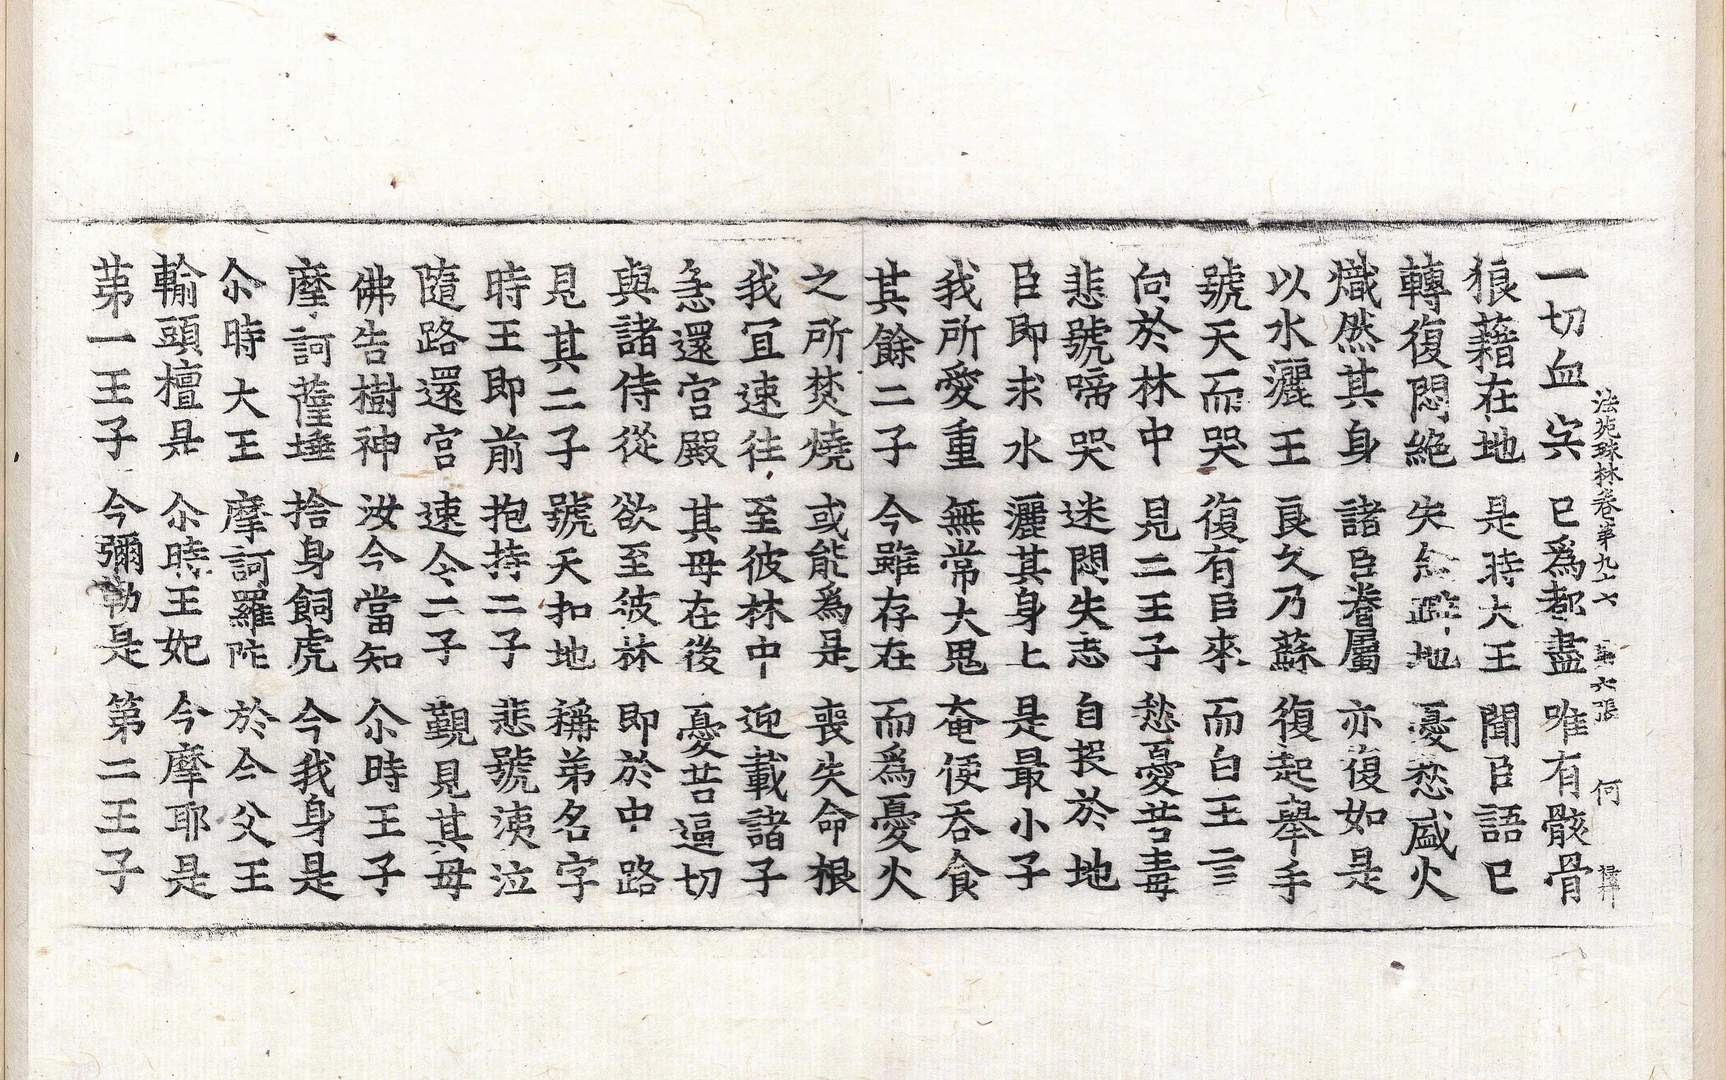 法苑珠林卷第九十六 第六張 何
一切血肉 已爲都盡 唯有骸骨
狼藉在地 是時大王 聞臣語已
轉復悶絶 失念躃地 憂愁盛火
熾然其身 諸臣眷屬 亦復如是
以水灑王 良久乃蘇 復起舉手
號天而哭 復有臣來 而白王言
向於林中 見二王子 愁憂苦毒
悲號啼哭 迷悶失志 自投於地
臣即求水 灑其身上 是最小子
我所愛重 無常大鬼 奄便吞食
其餘二子 今雖存在 而爲憂火
之所焚燒 或能爲是 喪失命根
我冝速往 至彼林中 迎載諸子
急還宫殿 其母在後 憂苦逼切
與諸侍從 欲至彼林 即於中路
見其二子 號天扣地 稱弟名字
時王即前 抱持二子 悲號洟泣
隨路還宫 速令二子 覲見其母
佛告樹神 汝今當知 尒時王子
摩訶薩埵 捨身飼虎 今我身是
尒時大王 摩訶羅陁 於今父王
輸頭檀是 尒時王妃 今摩耶是
苐一王子 今彌勒是 第二王子